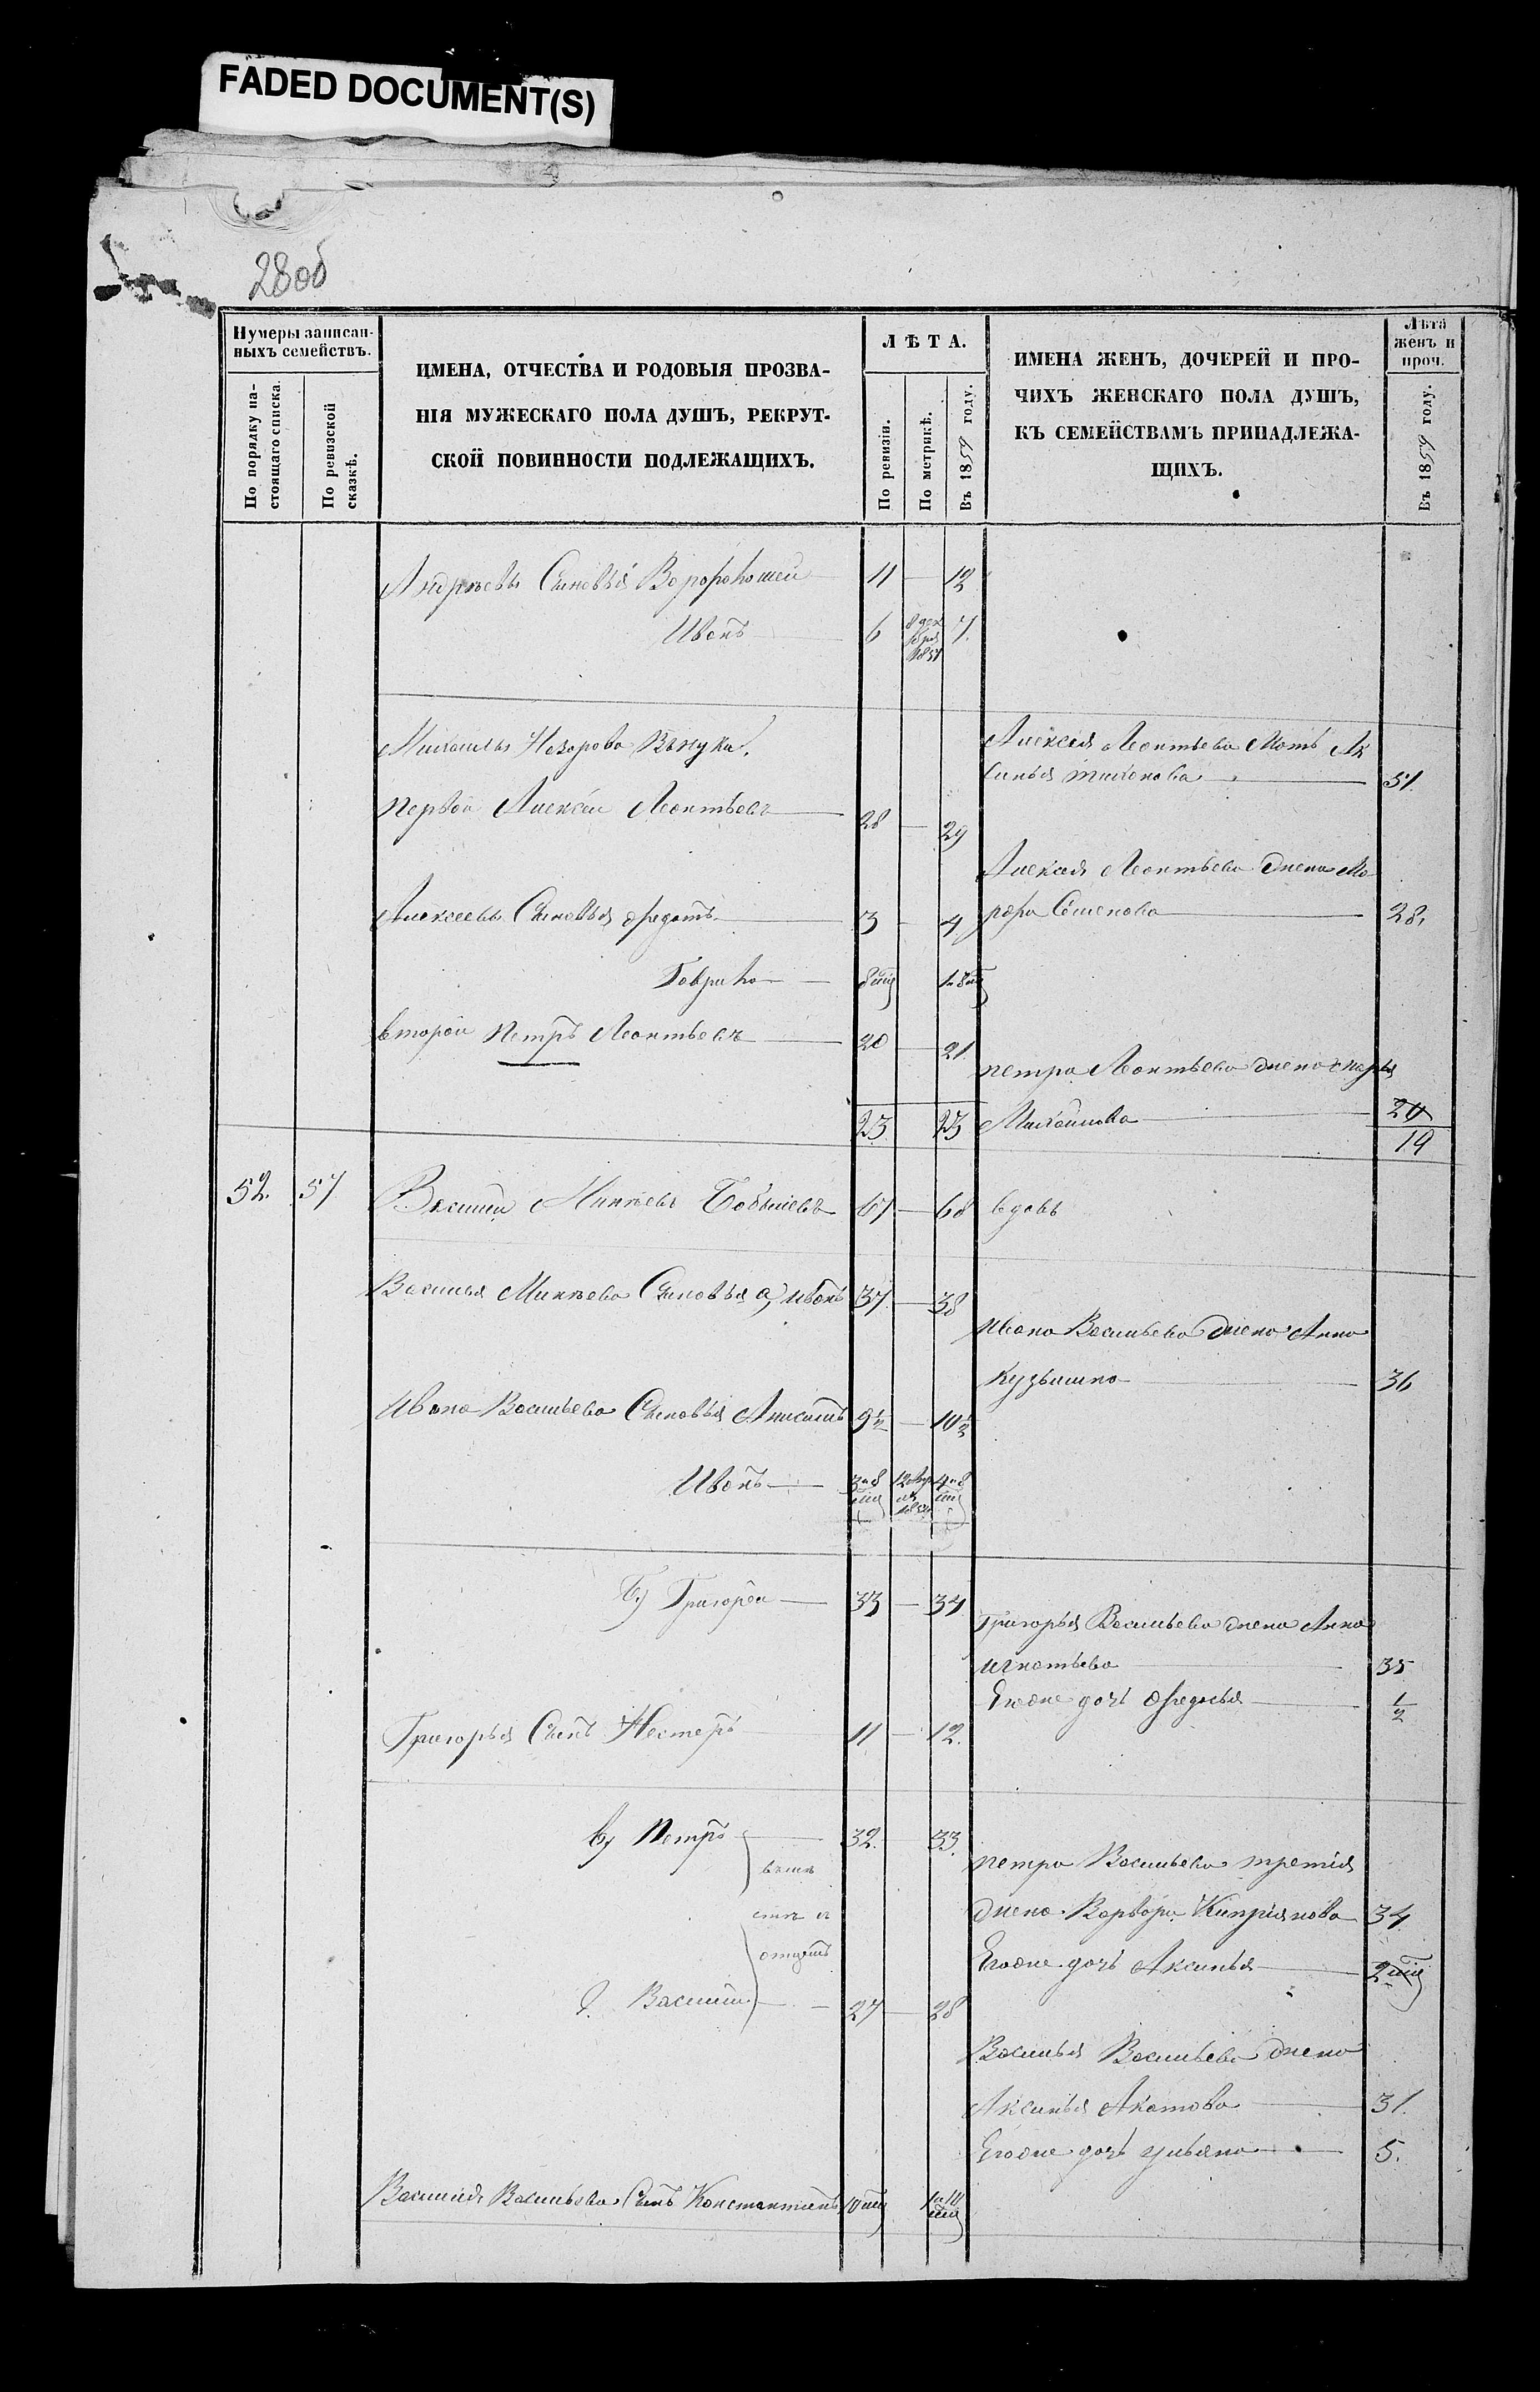 FADED DOCUMENT(S)
28об
Нумеры записан-
ныхъ семействъ.
По порядку на-
стоящаго списка.
По ревизской
сказкѣ.
ИМЕНА, ОТЧЕСТВА И РОДОВЫЯ ПРОЗВА-
НІЯ МУЖЕСКАГО ПОЛА ДУШЪ, РЕКРУТ-
СКОЙ ПОВИННОСТИ ПОДЛЕЖАЩИХЪ.
ЛѢТА.
По ревизіи.
По метрикѣ.
Въ 1859 году.
ИМЕНА ЖЕНЪ, ДОЧЕРЕЙ И ПРО-
ЧИХЪ ЖЕНСКАГО ПОЛА ДУШЪ,
КЪ СЕМЕЙСТВАМЪ ПРИНАДЛЕЖА-
ЩИХЪ.
Лѣта
женъ и
проч.
Въ 1859 году.
Андреевы Сыновья 11 — 12
Иванъ 6 7.
Назарова Внука.
Алексея Леонтьева Мать Ак
синья 51.
первой Алексей Леонтьевъ 28 — 29
Алексея Леонтьева жена Ма
Алексеевы Сыновья Федотъ 3 — 4
Семенова 28.
Гаврило 8 мц 1 и 8 мц
второй Петръ Леонтьевъ 20 — 21.
петра Леонтьева жена Марья
Михайлова 20
23 23 19
52. 57 Василий Минѣевъ 67 — 68 вдовъ
Василья Минѣева Сыновья а, иванъ 37 — 38
Ивана Васильева жена Анна
Кузьмина 36
Ивана Васильева Сыновья 9½ — 10½
Иванъ 3 и 8 мц 4 и 8 мц
б) Григорей 33 — 34
Григорья Васильева жена Анна
игнатьева 35
Егоже дочь Федосья ½
Григорья Сынъ Нестеръ 11 — 12.
в) Петръ 32. 33.
петра Васильева третія
жена Варвара Кипріянова 34
Егоже дочь Аксинья 2 мц
Василий 27 — 28
Василья Васильева жена
Аксинья 31.
Егоже дочь ульяна 5.
Василия Васильева Сынъ Константинъ 10 мц 1 и 10 мц